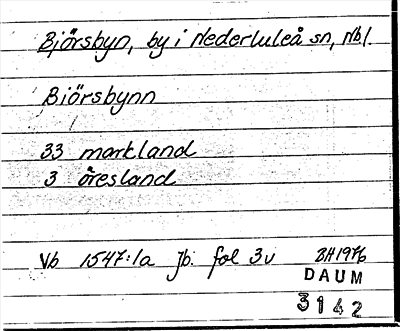 Bjorsbyn, by i Nederluleå sn, Nbl.
Biörsbynn
33 markland
3 öresland
Vb 1547:1a Jb. fol 3v BH 1976
DAUM
3142